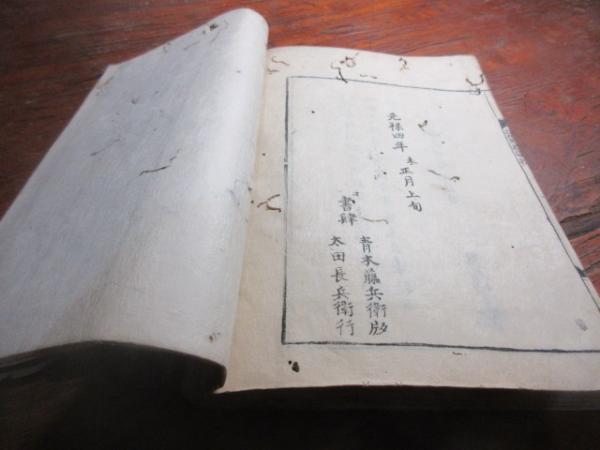 元禄四年 未 正月上旬
書肆
青木藤兵衛版
太田長兵衛行